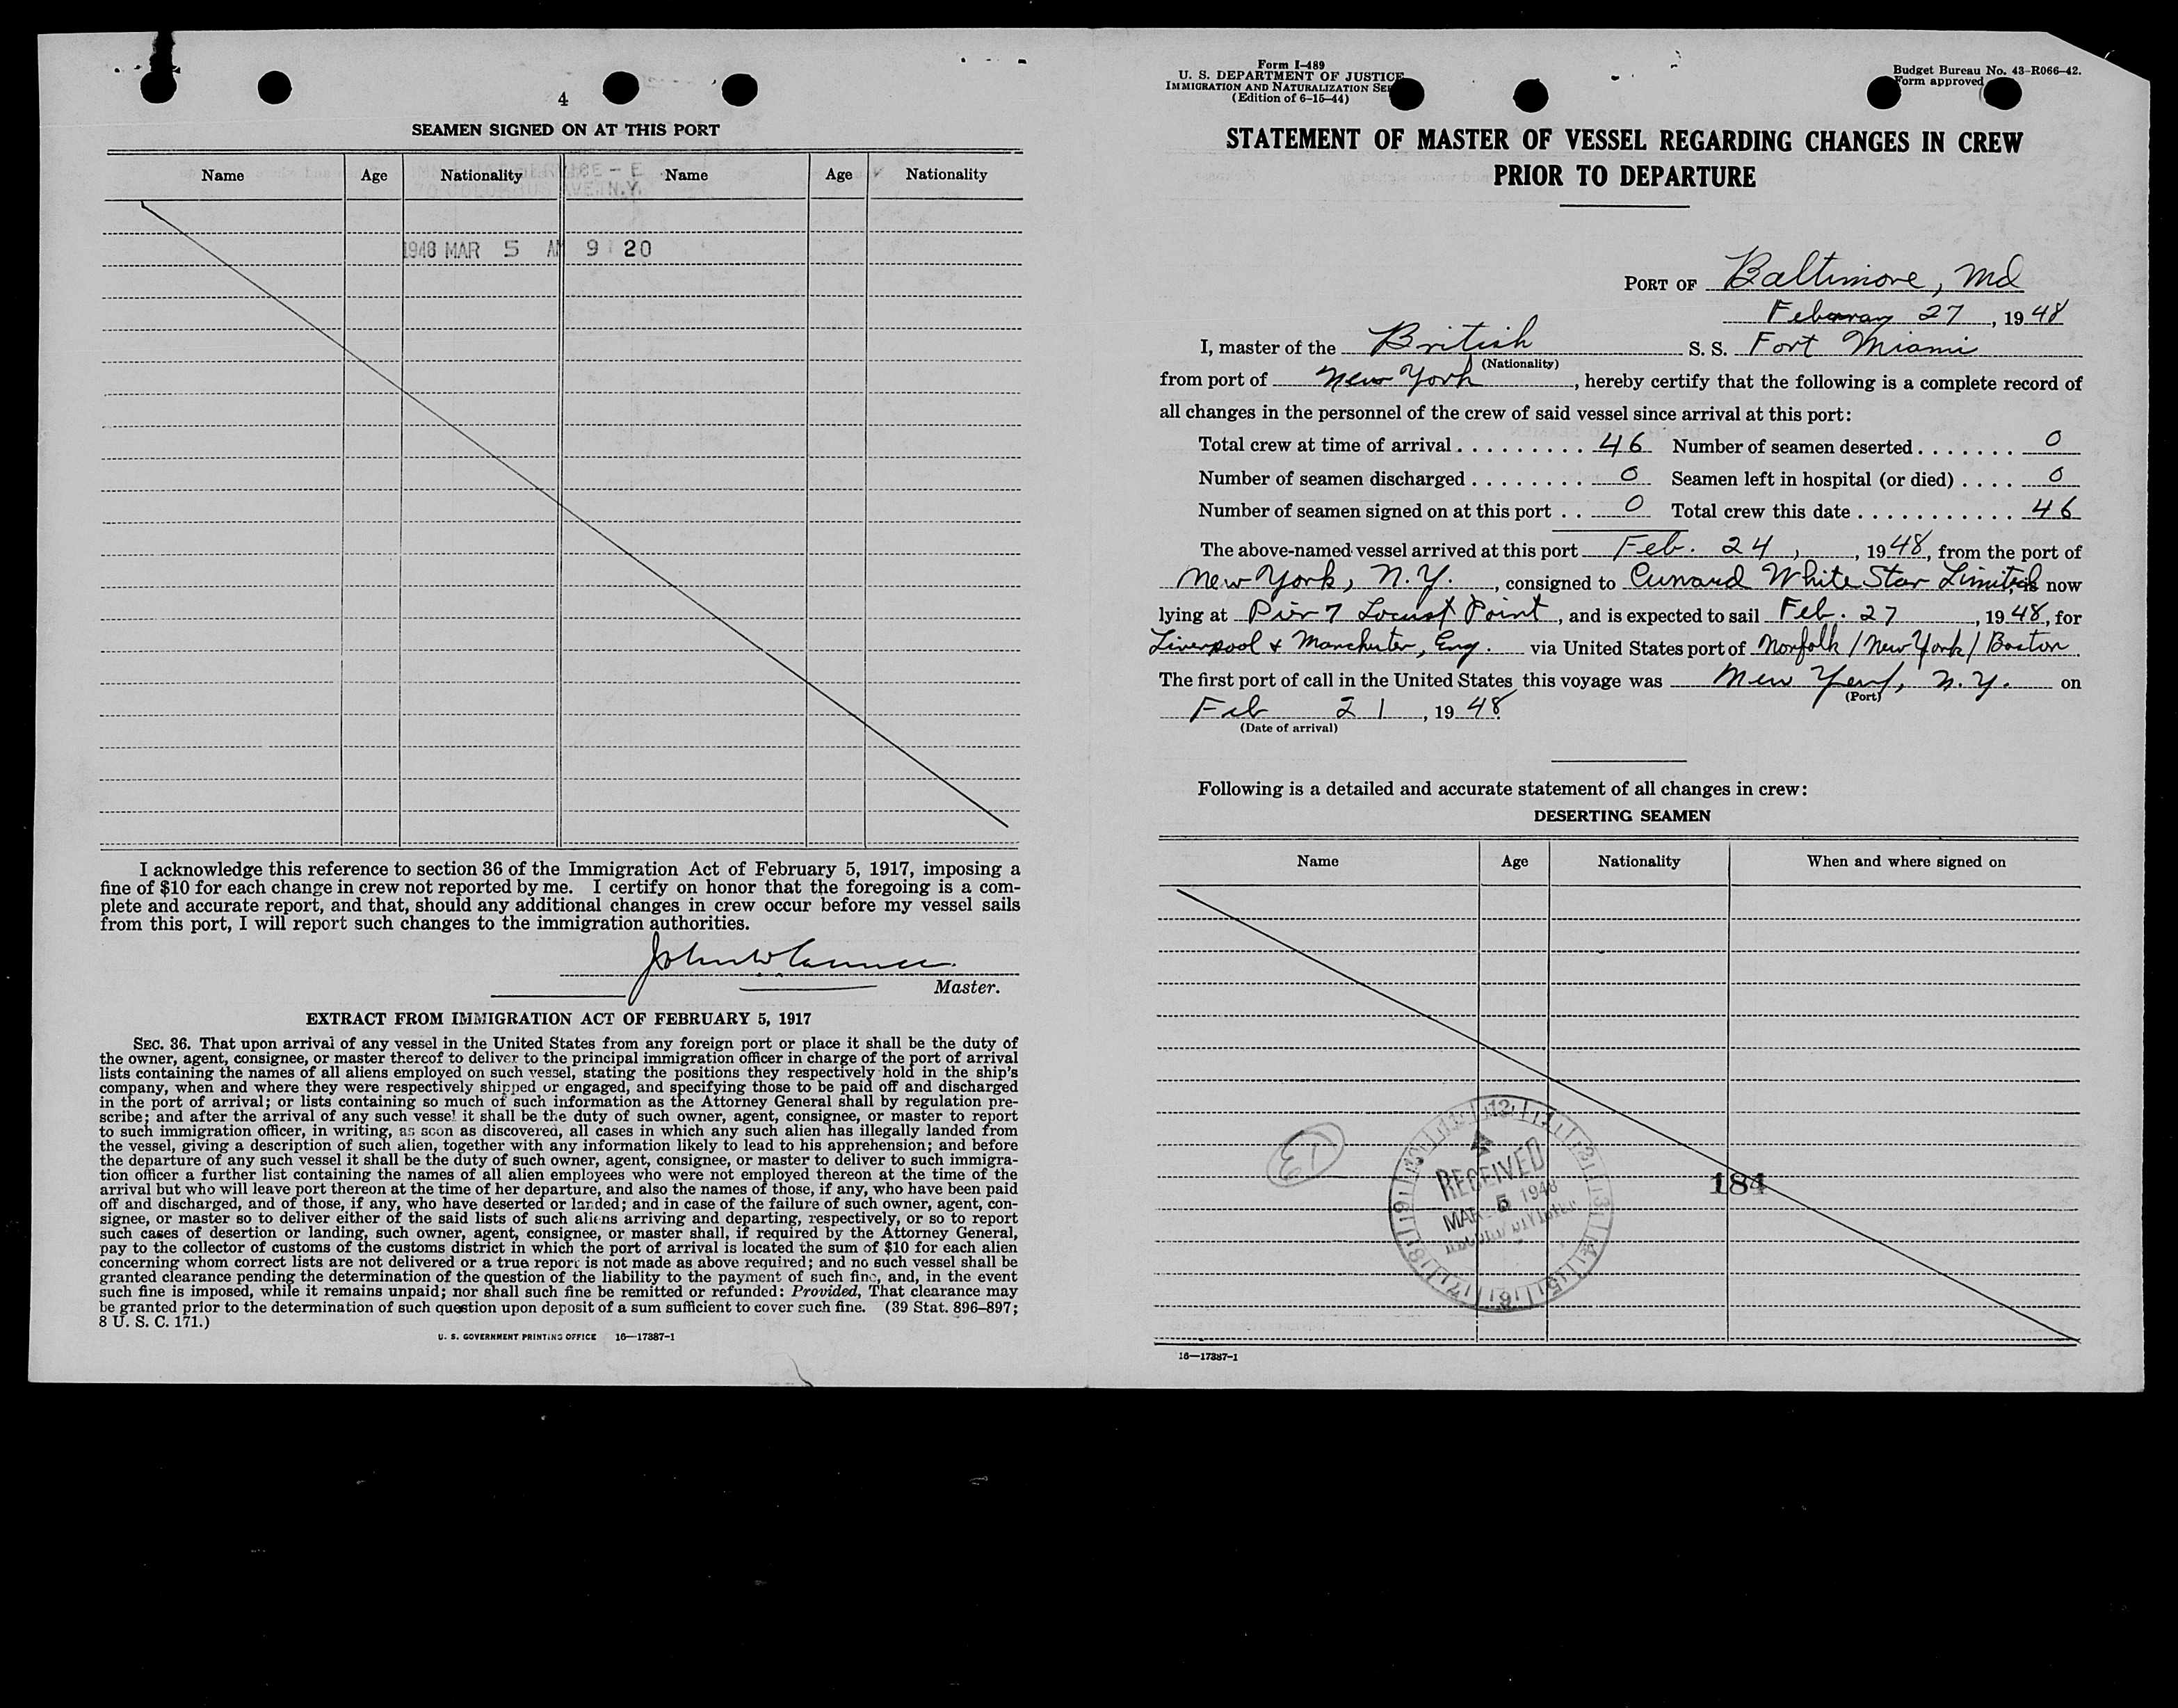 4
SEAMEN SIGNED ON AT THIS PORT
Name Age Nationality Name Age Nationality
1948 MAR 5 AM 9 20
I acknowledge this reference to section 36 of the Immigration Act of February 5, 1917, imposing a
fine of $10 for each change in crew not reported by me. I certify on honor that the foregoing is a com-
plete and accurate report, and that, should any additional changes in crew occur before my vessel sails
from this port, I will report such changes to the immigration authorities.
John W
Master.
EXTRACT FROM IMMIGRATION ACT OF FEBRUARY 5, 1917
SEC. 36. That upon arrival of any vessel in the United States from any foreign port or place it shall be the duty of
the owner, agent, consignee, or master thereof to deliver to the principal immigration officer in charge of the port of arrival
lists containing the names of all aliens employed on such vessel, stating the positions they respectively hold in the ship's
company, when and where they were respectively shipped or engaged, and specifying those to be paid off and discharged
in the port of arrival; or lists containing so much of such information as the Attorney General shall by regulation pre-
scribe; and after the arrival of any such vessel it shall be the duty of such owner, agent, consignee, or master to report
to such immigration officer, in writing, as soon as discovered, all cases in which any such alien has illegally landed from
the vessel, giving a description of such alien, together with any information likely to lead to his apprehension; and before
the departure of any such vessel it shall be the duty of such owner, agent, consignee, or master to deliver to such immigra-
tion officer a further list containing the names of all alien employees who were not employed thereon at the time of the
arrival but who will leave port thereon at the time of her departure, and also the names of those, if any, who have been paid
off and discharged, and of those, if any, who have deserted or landed; and in case of the failure of such owner, agent, con-
signee, or master so to deliver either of the said lists of such aliens arriving and departing, respectively, or so to report
such cases of desertion or landing, such owner, agent, consignee, or master shall, if required by the Attorney General,
pay to the collector of customs of the customs district in which the port of arrival is located the sum of $10 for each alien
concerning whom correct lists are not delivered or a true report is not made as above required; and no such vessel shall be
granted clearance pending the determination of the question of the liability to the payment of such fine, and, in the event
such fine is imposed, while it remains unpaid; nor shall such fine be remitted or refunded: Provided, That clearance may
be granted prior to the determination of such question upon deposit of a sum sufficient to cover such fine. (39 Stat. 896–897;
8 U. S. C. 171.)
U. S. GOVERNMENT PRINTING OFFICE 16—17387-1
Form I-489
U. S. DEPARTMENT OF JUSTICE
IMMIGRATION AND NATURALIZATION SE
(Edition of 6-15-44)
Budget Bureau No. 43-R066-42.
Form approved
STATEMENT OF MASTER OF VESSEL REGARDING CHANGES IN CREW
PRIOR TO DEPARTURE
PORT OF Baltimore, Md
February 27, 1948
I, master of the British S. S. Fort Miami
(Nationality)
from port of New York, hereby certify that the following is a complete record of
all changes in the personnel of the crew of said vessel since arrival at this port:
Total crew at time of arrival . . . . . . . . . 46 Number of seamen deserted . . . . . . . 0
Number of seamen discharged . . . . . . . . 0 Seamen left in hospital (or died) . . . . 0
Number of seamen signed on at this port . . 0 Total crew this date . . . . . . . . . . . 46
The above-named vessel arrived at this port Feb. 24, , 1948, from the port of
New York, N.Y., consigned to Cunard White Star Limited, is now
lying at Pier 7 Locust Point, and is expected to sail Feb. 27, 1948, for
Liverpool & Manchester, Eng. via United States port of Norfolk / New York / Boston.
The first port of call in the United States this voyage was New York, N.Y. on
(Port)
Feb 21, 1948.
(Date of arrival)
Following is a detailed and accurate statement of all changes in crew:
DESERTING SEAMEN
Name Age Nationality When and where signed on
ED
12 1 2 3 4 5 6 7 8 9 10 11
RECEIVED
MAR 5 1948
RECORD DIVISION
184
16—17387-1